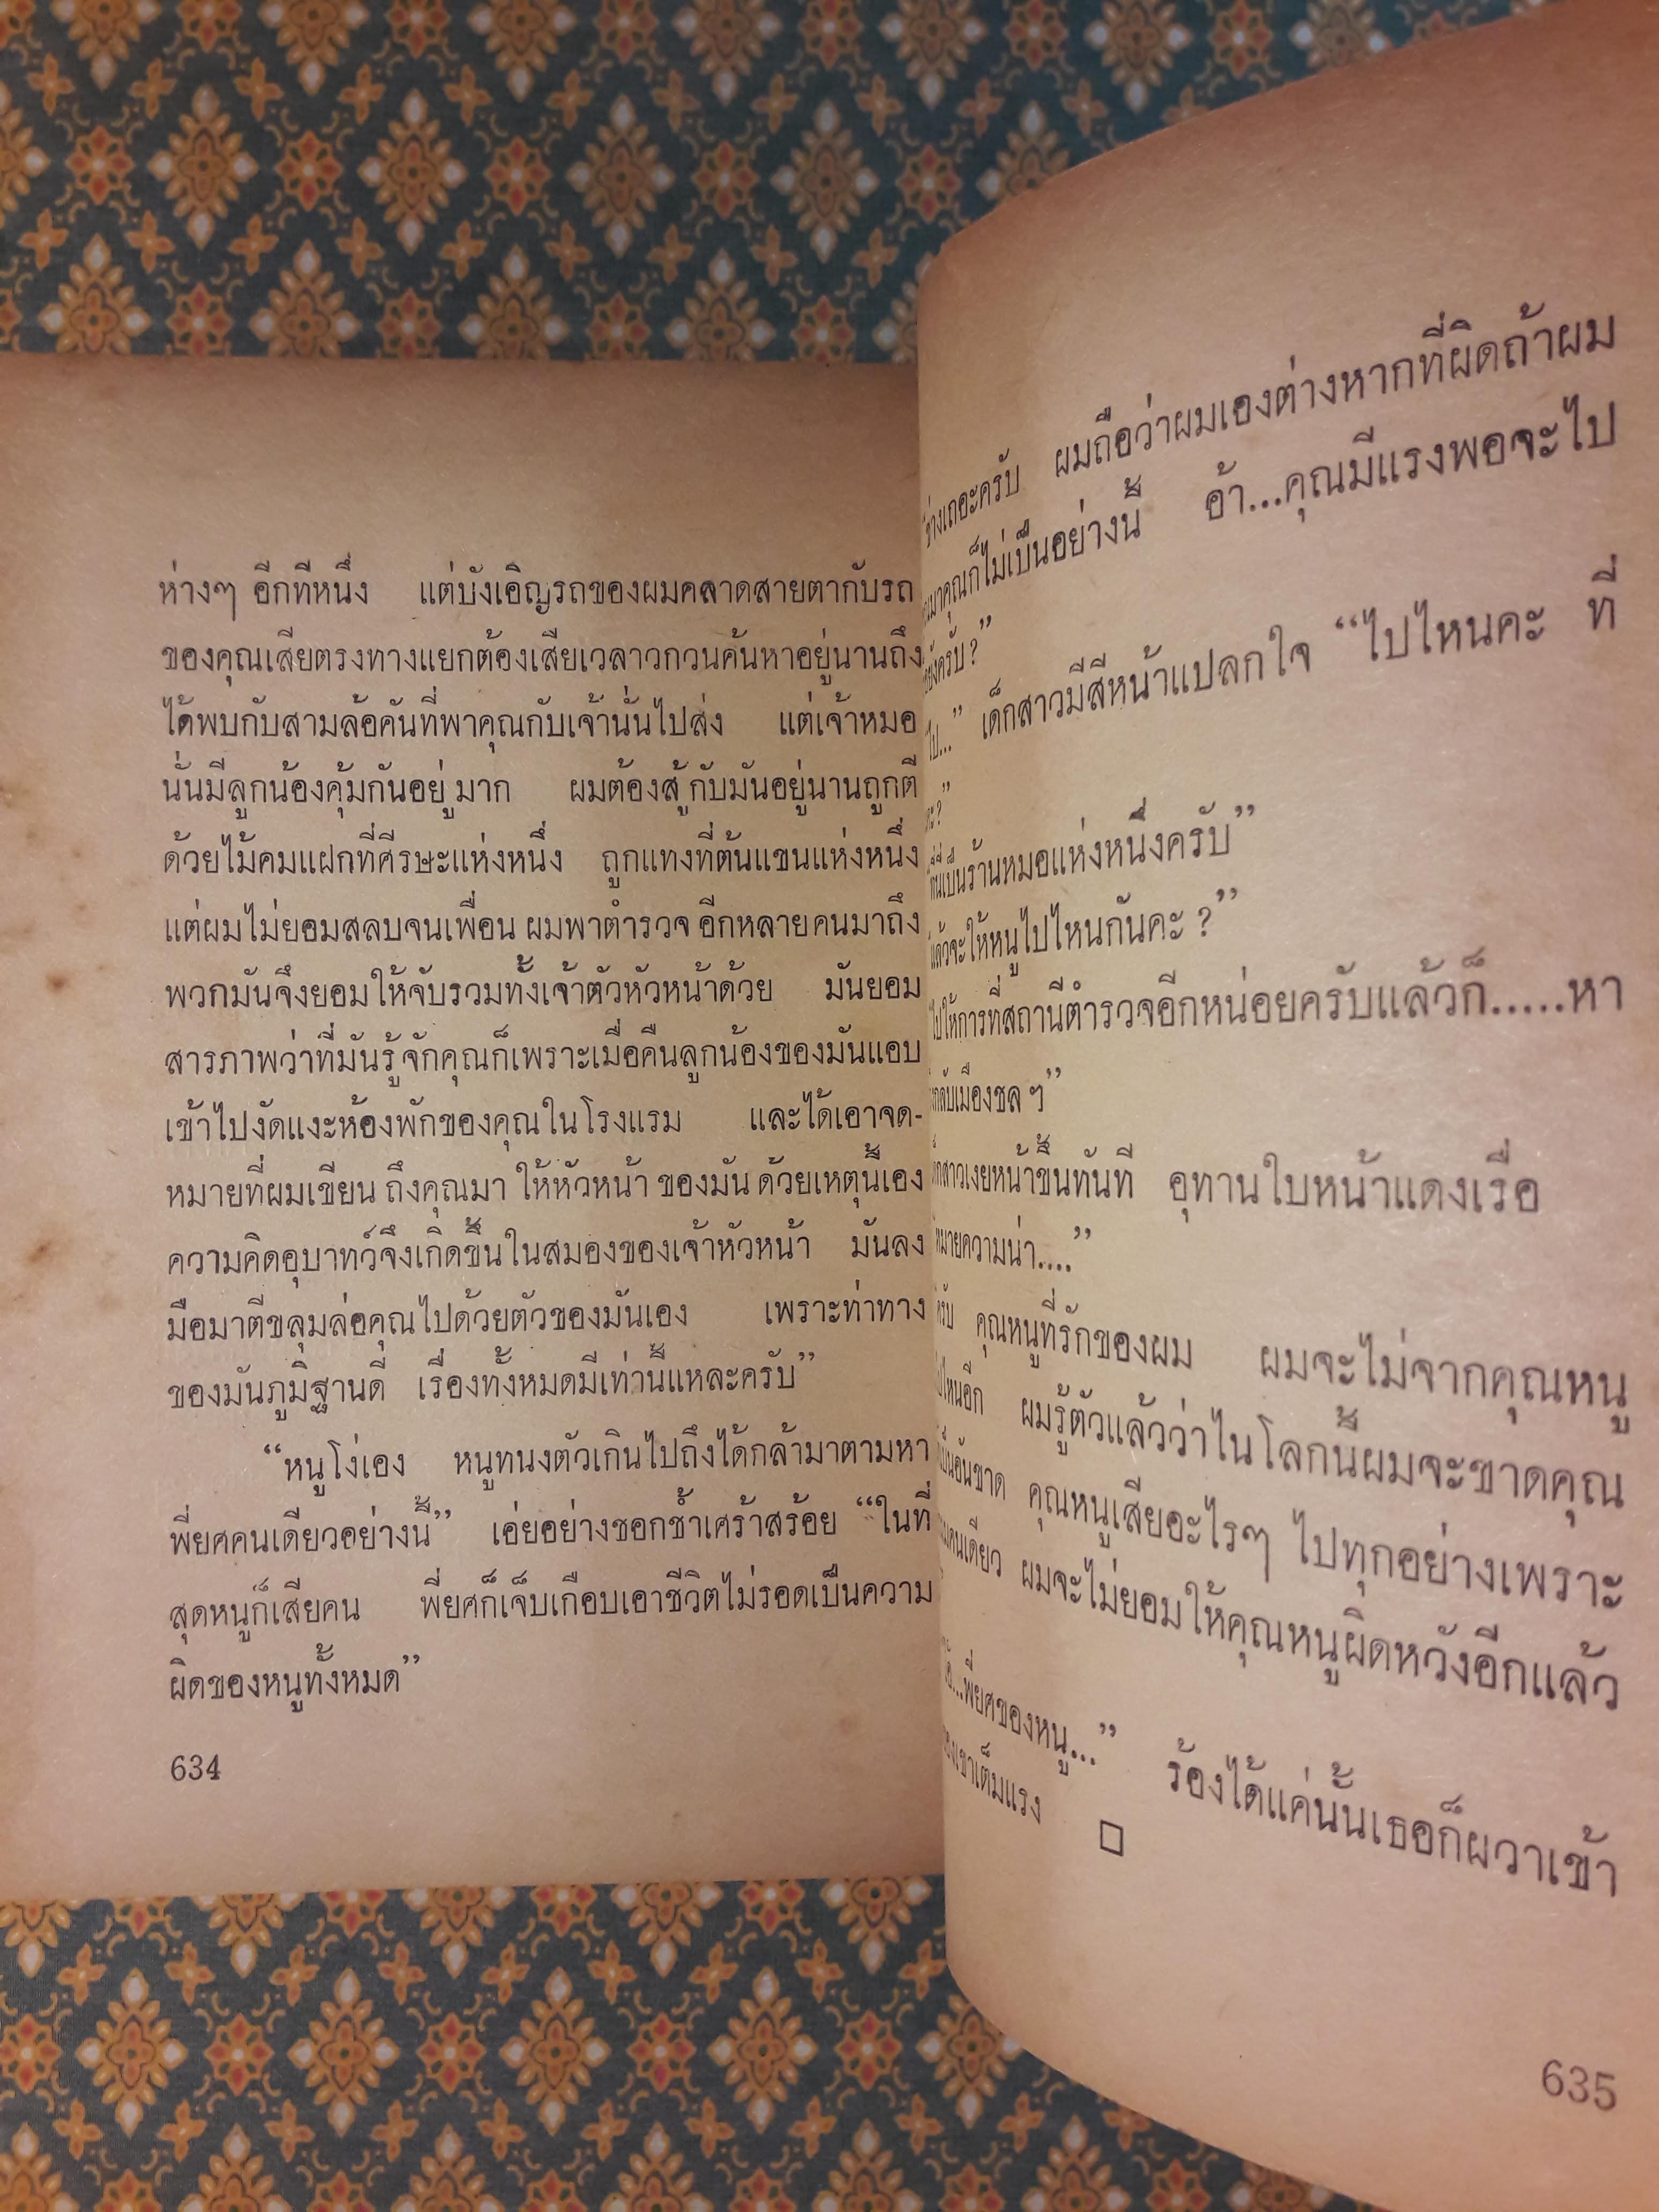 ห่างๆ อีกทีหนึ่ง แต่บังเอิญรถของผมคลาดสายตากับรถ
ของคุณเสียตรงทางแยกต้องเสียเวลาวกวนค้นหาอยู่นานถึง
ได้พบกับสามล้อคันที่พาคุณกับเจ้านั่นไปส่ง แต่เจ้าหมอ
นั่นมีลูกน้องคุ้มกันอยู่มาก ผมต้องสู้กับมันอยู่นานถูกตี
ด้วยไม้คมแฝกที่ศีรษะแห่งหนึ่ง ถูกแทงที่ต้นแขนแห่งหนึ่ง
แต่ผมไม่ยอมสลบจนเพื่อน ผมพาตำรวจ อีกหลายคนมาถึง
พวกมันจึงยอมให้จับรวมทั้งเจ้าตัวหัวหน้าด้วย มันยอม
สารภาพว่าที่มันรู้จักคุณก็เพราะเมื่อคืนลูกน้องของมันแอบ
เข้าไปงัดแงะห้องพักของคุณในโรงแรม และได้เอาจด-
หมายที่ผมเขียน ถึงคุณมา ให้หัวหน้า ของมัน ด้วยเหตุนี้เอง
ความคิดอุบาทว์จึงเกิดขึ้นในสมองของเจ้าหัวหน้า มันลง
มือมาตีขลุมล่อคุณไปด้วยตัวของมันเอง เพราะท่าทาง
ของมันภูมิฐานดี เรื่องทั้งหมดมีเท่านี้แหละครับ”
“หนูโง่เอง หนูทนงตัวเกินไปถึงได้กล้ามาตามหา
พี่ยศคนเดียวอย่างนี้” เอ่ยอย่างชอกช้ำเศร้าสร้อย “ในที่
สุดหนูก็เสียคน พี่ยศก็เจ็บเกือบเอาชีวิตไม่รอดเป็นความ
ผิดของหนูทั้งหมด”
634
ช่างเถอะครับ ผมถือว่าผมเองต่างหากที่ผิดถ้าผม
คุณก็ไม่เป็นอย่างนี้ อ้า...คุณมีแรงพอจะไป
ครับ?”
ไป...” เด็กสาวมีสีหน้าแปลกใจ “ไปไหนคะ ที่
คะ?”
เป็นร้านหมอแห่งหนึ่งครับ”
แล้วจะให้หนูไปไหนกันคะ ?”
ไปให้การที่สถานีตำรวจอีกหน่อยครับแล้วก็.....หา
กลับเมืองชล ๆ”
สาวเงยหน้าขึ้นทันที อุทานใบหน้าแดงเรื่อ
หมายความน่า....”
ครับ คุณหนูที่รักของผม ผมจะไม่จากคุณหนู
ไปไหนอีก ผมรู้ตัวแล้วว่าในโลกนี้ผมจะขาดคุณ
เป็นอันขาด คุณหนูเสียอะไรๆ ไปทุกอย่างเพราะ
คนเดียว ผมจะไม่ยอมให้คุณหนูผิดหวังอีกแล้ว
...พี่ยศของหนู...” ร้องได้แค่นั้นเธอก็ผวาเข้า
ของเขาเต็มแรง
635